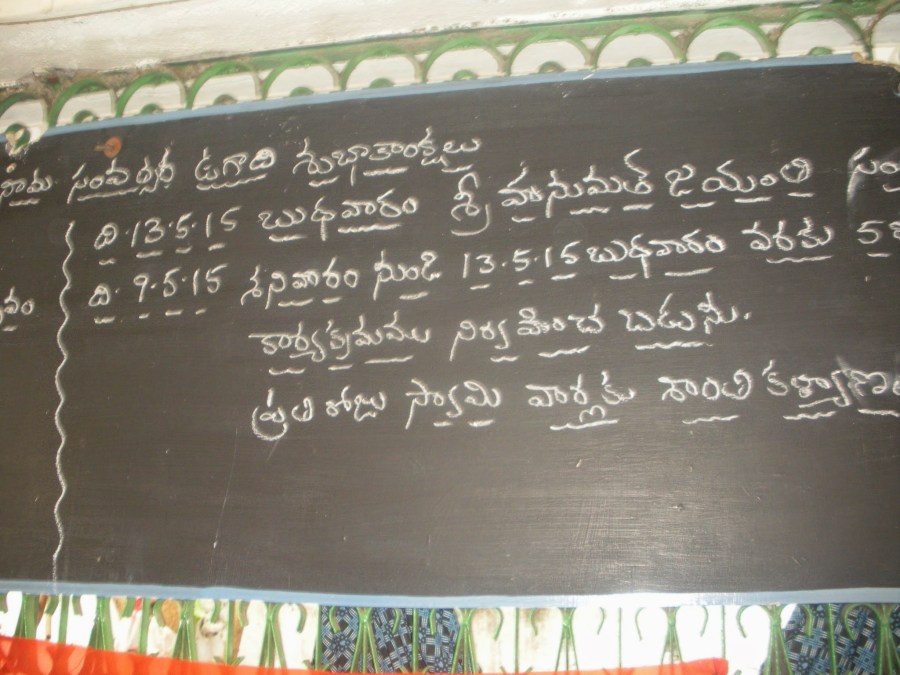 నామ సంవత్సర ఉగాది శుభాకాంక్షలు
ది. 13.5.15 బుధవారం శ్రీ హనుమత్ జయంతి
ది. 9.5.15 శనివారం నుండి 13.5.15 బుధవారం వరకు 5
కార్యక్రమము నిర్వహించ బడును.
ప్రతి రోజు స్వామి వార్లకు శాంతి